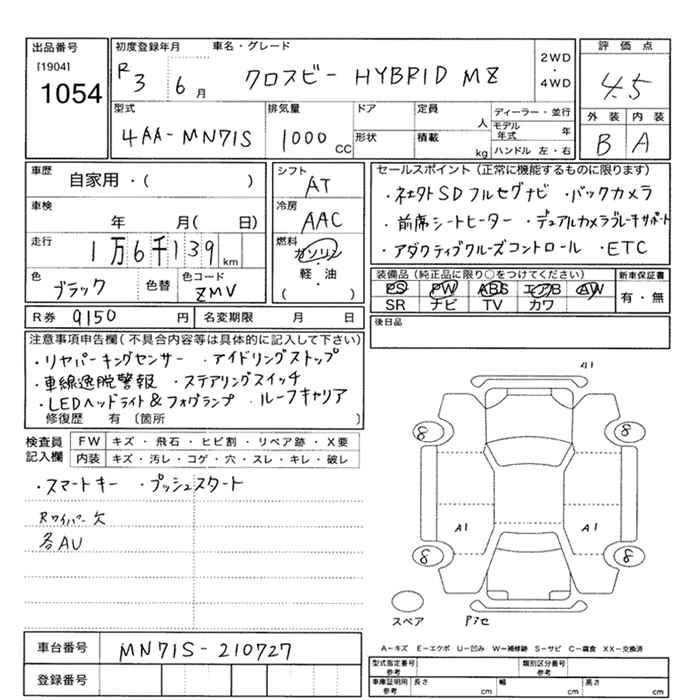 出品番号 初度登録年月 車名・グレード 評価点
[1904]
1054
R3 6月 クロスビー HYBRID MZ 2WD・4WD 4.5
型式 排気量 ドア 定員 ディーラー・並行
人 モデル年式 年 外装 内装
4AA-MN71S 1000cc 形状 積載 kg ハンドル 左・右 B A
車歴 自家用・( )
シフト AT
セールスポイント(正常に機能するものに限ります)
・社外SDフルセグナビ ・バックカメラ
・前席シートヒーター ・デュアルカメラブレーキサポート
・アダクティブクルーズコントロール ・ETC
車検 年 月( 日)
冷房 AAC
走行 1万6千139km
燃料 ガソリン・軽・油 ( )
色 ブラック 色替 色コード ZMV
装備品(純正品に限り○をつけてください) 新車保証書
PS PW ABS エアB AW
SR ナビ TV カワ 有・無
R券 9150円 名変期限 月 日
後日品
注意事項申告欄(不具合内容等は具体的に記入して下さい)
・リヤパーキングセンサー ・アイドリングストップ
・車線逸脱警報 ・ステアリングスイッチ
・LEDヘッドライト&フォグランプ ・ルーフキャリア
修復歴 有 〔箇所 )
検査員記入欄 FW キズ・飛石・ヒビ割・リペア跡・X要
内装 キズ・汚レ・コゲ・穴・スレ・キレ・破レ
・スマートキー ・プッシュスタート
Rワイパー欠
各AU
A1
8 8
A1 A1
8 8
スペア
車台番号 MN71S-210727
登録番号
A-キズ E-エクボ U-凹み W-補修跡 S-サビ C-腐食 XX-交換済
型式指定番号 参考 類別区分番号 参考
車庫証明用 参考 長さ cm 幅 cm 高さ cm